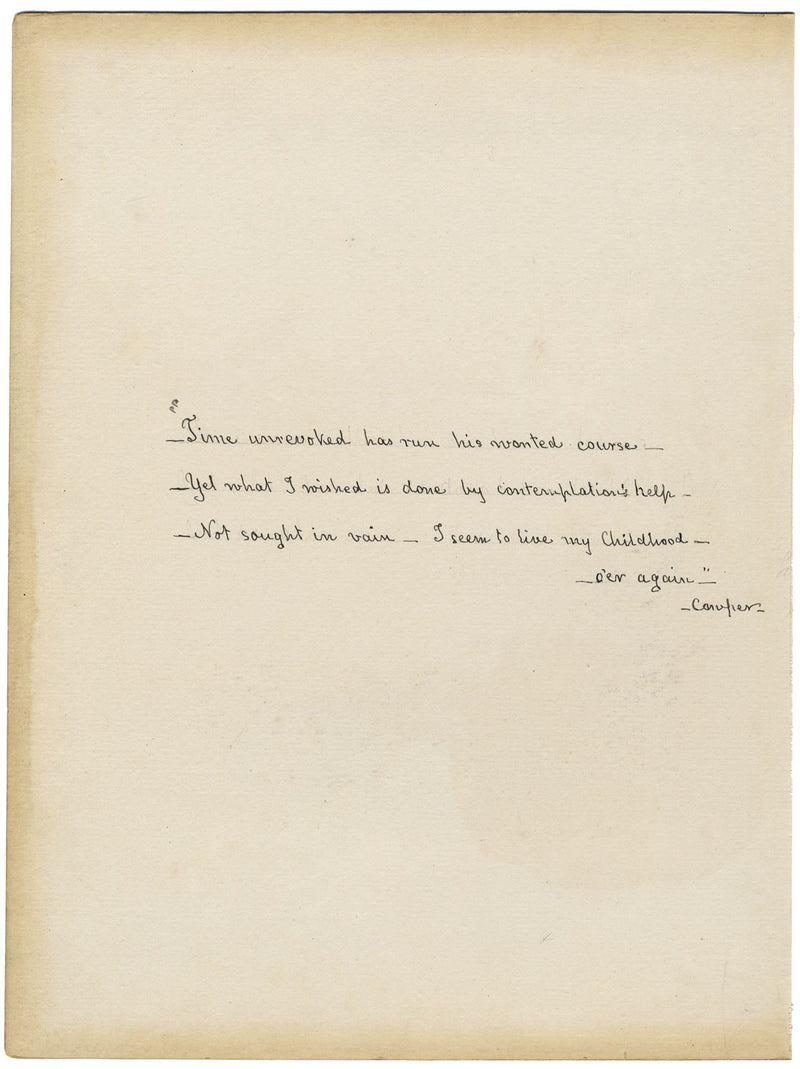 "
—Time unrevoked has run his wonted course—
—Yet what I wished is done by contemplation's help—
—Not sought in vain — I seem to live my Childhood—
—o'er again"—
—Cowper—